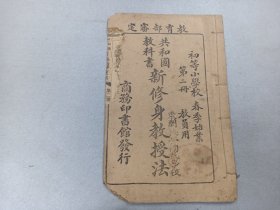 教育部審定
初等小學校 春季始業
第二冊 教員用
共和國
教科書
新修身教授法
商務印書館發行